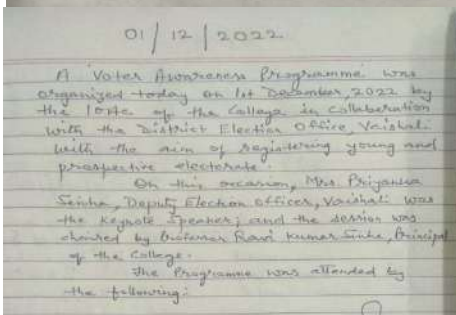 01/12/2022
A Voter Awareness Programme was
organized today on 1st December, 2022 by
the IQAC of the College in collaboration
with the District Election Office, Vaishali
with the aim of registering young and
prospective electorate.
On this occasion, Mrs. Priyanka
Sinha, Deputy Election Officer, Vaishali was
the Keynote Speaker; and the session was
chaired by Professor Ravi Kumar Sinha, Principal
of the College.
The Programme was attended by
the following: